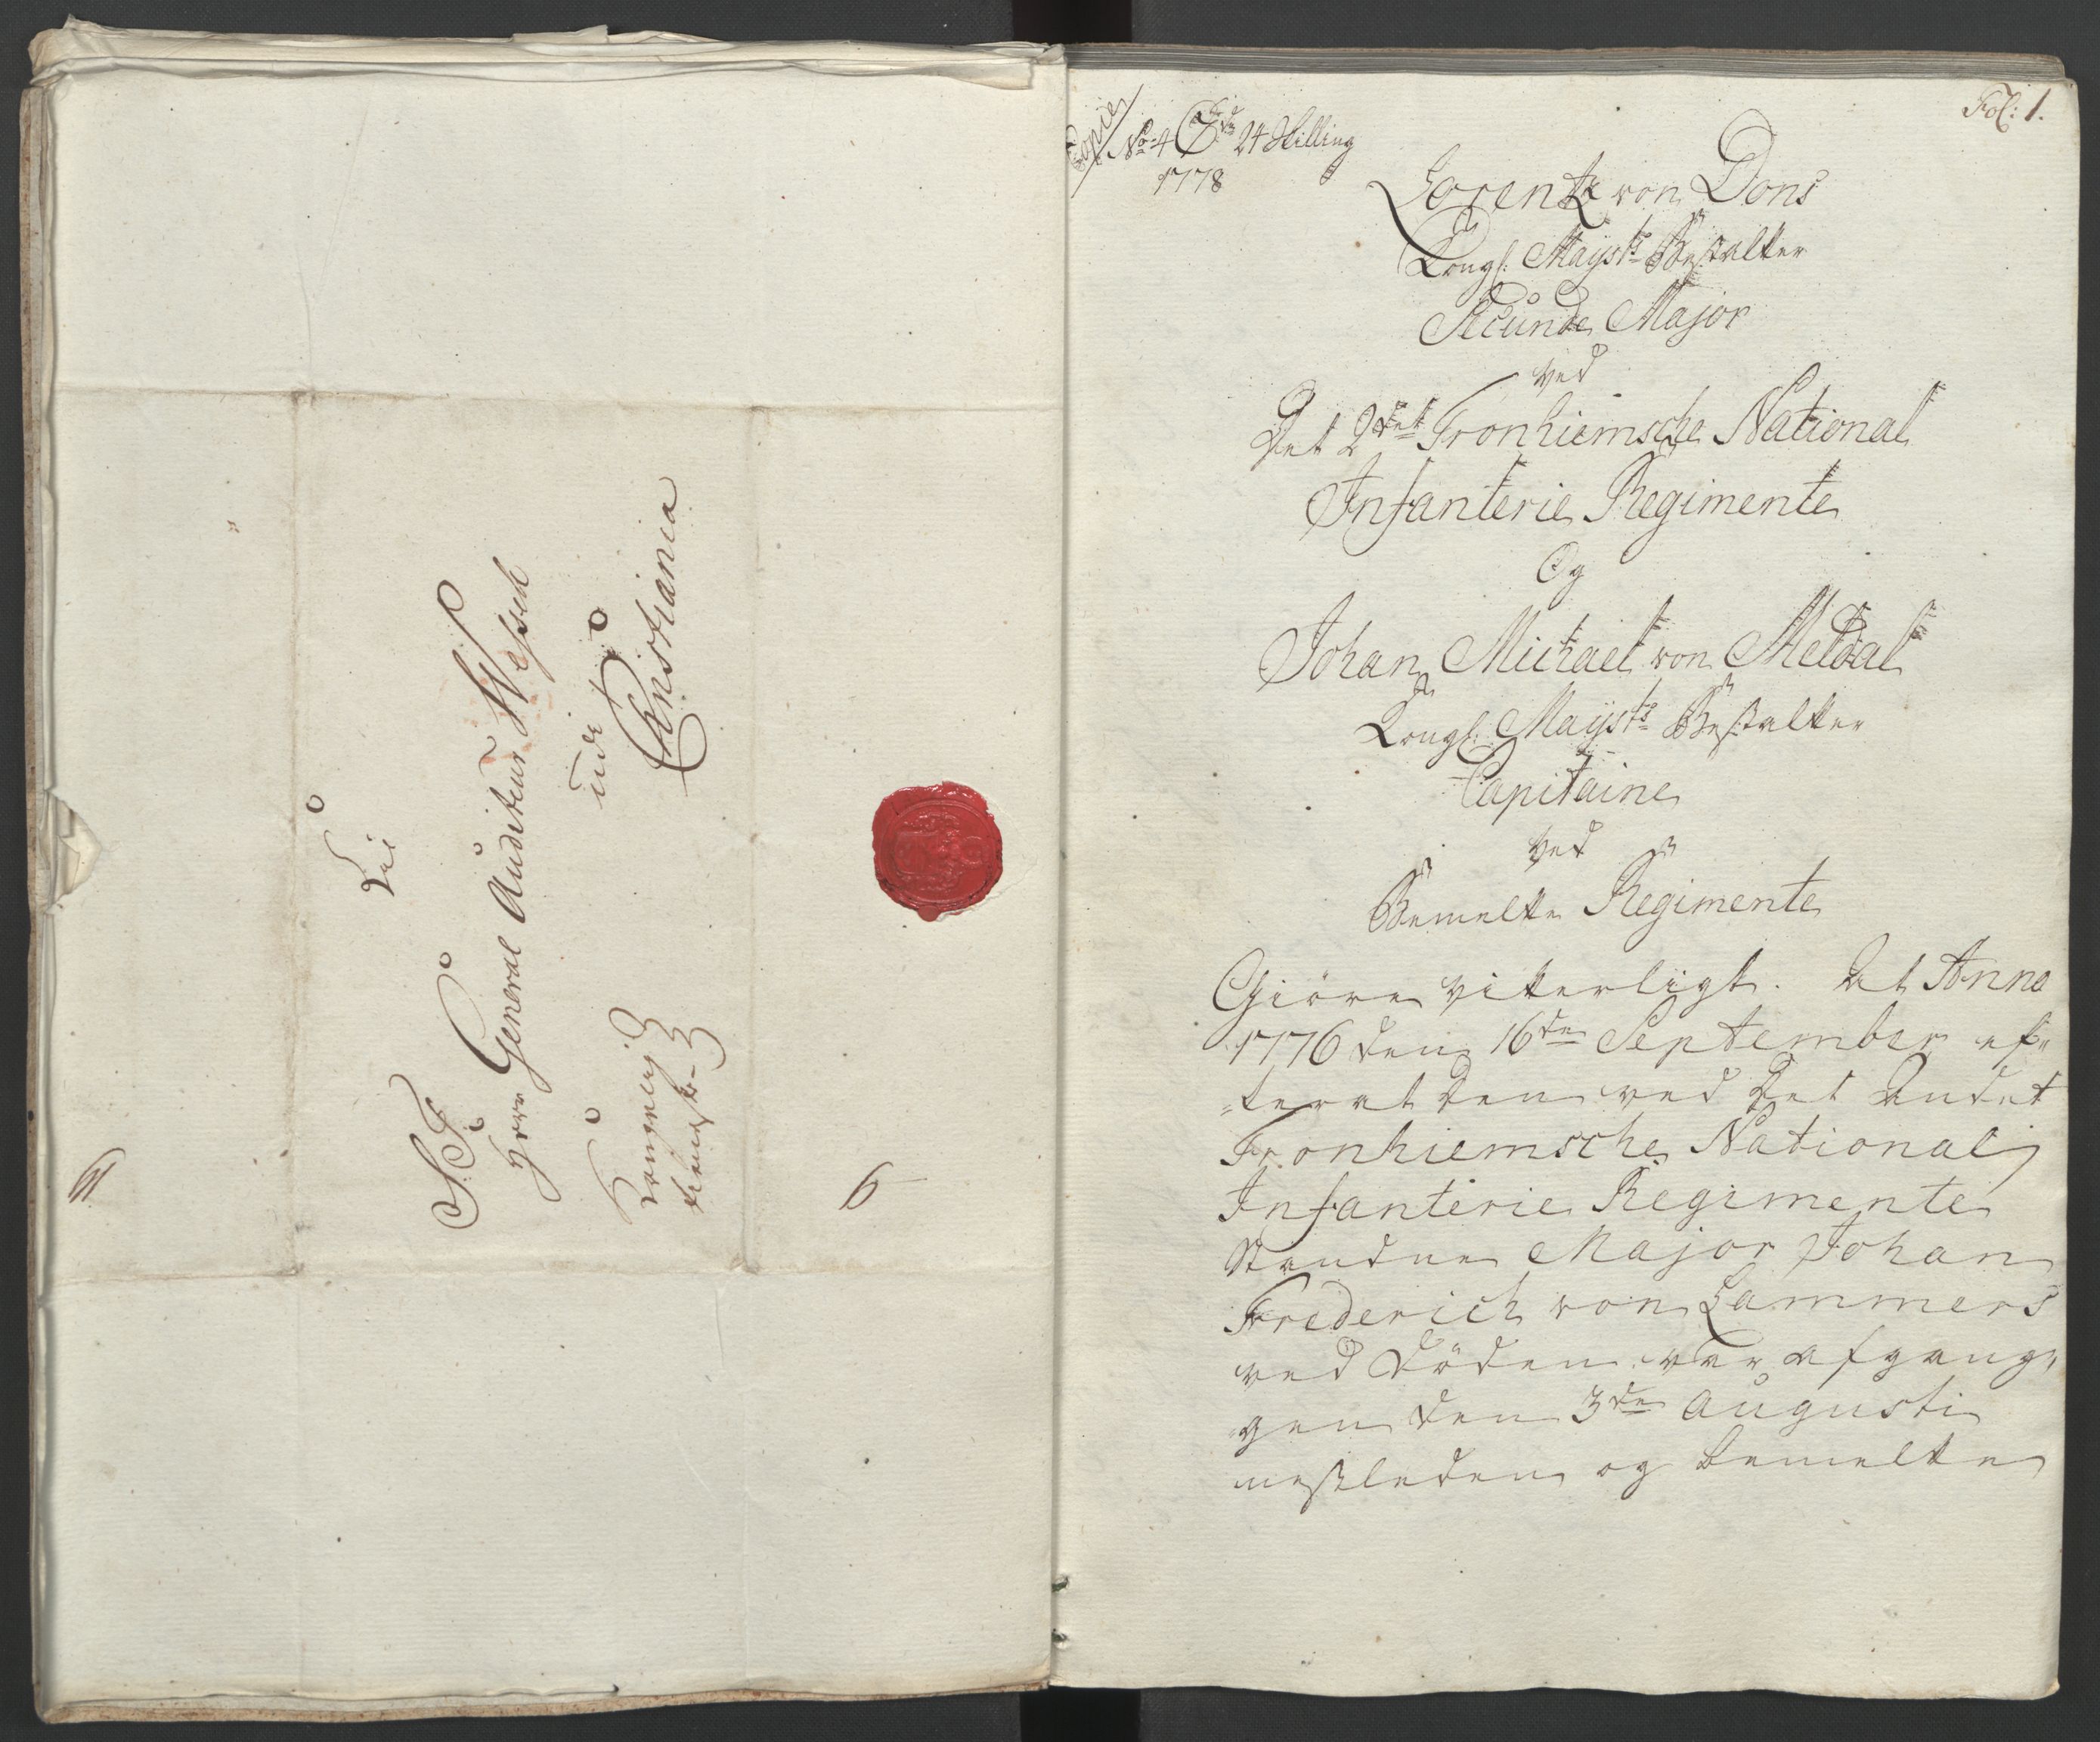 Til
S. T.
Herr General Auditeur Wessel
udi
Christiania
Kongelig
tieneste
6
Fol: 1.
Copie
No 4 24 Skilling
1778
Lorentz von Dons
Kongl: Mayst:s Bestalter
Secunde Major
ved
Det 2det Tronhiemsche National
Infanterie Regimente
Og
Johan Michael von Meldal
Kongl: Mayst:s Bestalter
Capitaine
ved
Bemelte Regimente
Giöre vitterligt. At Anno
1776 den 16de September ef„
„terat den ved Det Andet
Tronhiemsche National
Infanterie Regimente
staaende Major Johan
Frederich von Lammers
ved Döden var afgang„
gen den 3de Augusti
nestleden og bemelte